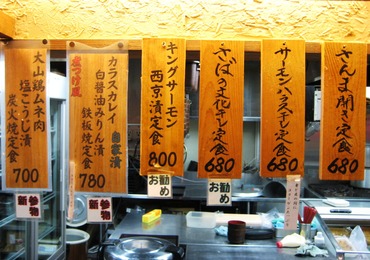 さんま開き定食
680
サーモンハラス干し定食
680
さばの文化干し定食
680
お勧め
キングサーモン
西京漬定食
800
お勧め
カラスカレイ
自家漬
白醤油みりん漬
鉄板焼定食
780
新参物
大山鶏ムネ肉
塩こうじ漬
炭火焼定食
700
新参物